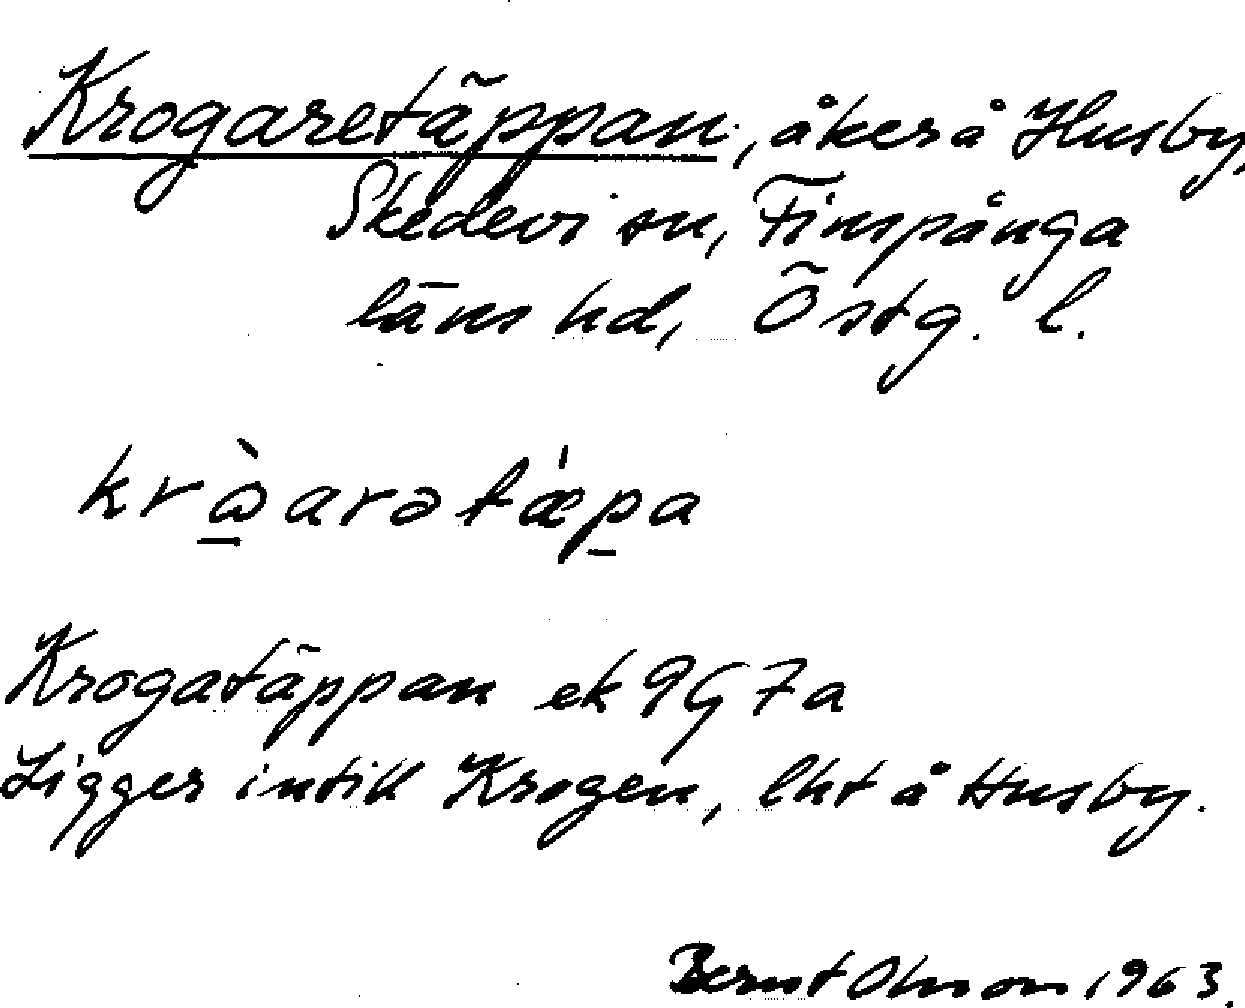 Krogaretäppan, åker å Husby,
Skedevi sn, Finspånga
läns hd, Östg. l.
Krogatäppan ek 9G7a
Ligger intill Krogen, lht å Husby.
Bernt Olsson 1963.